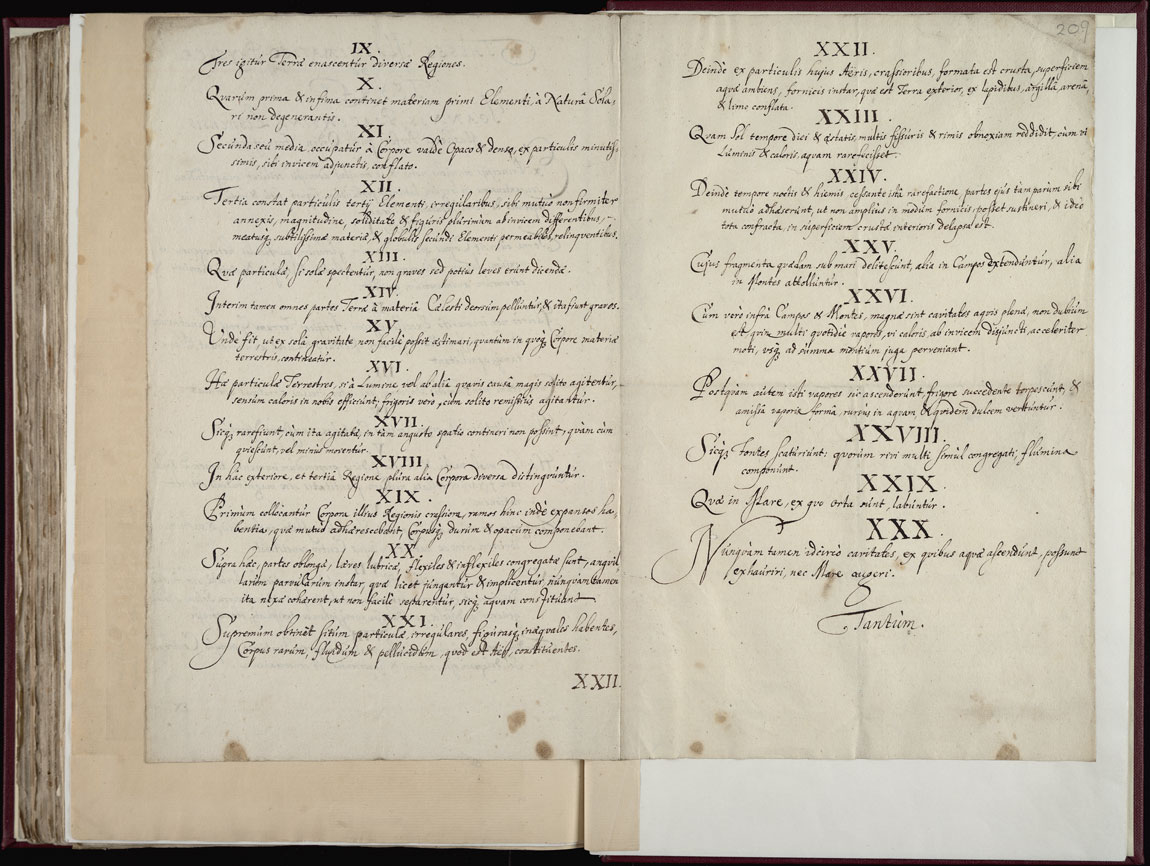 IX.
Tres igitur Terræ enascentur diversæ Regiones.
X.
Quarum prima & infima continet materiam primi Elementi, à Naturâ Sola-
ri non degenerantis.
XI.
Secunda seu media, occupatur à Corpore valdè Opaco & denso, ex particulis minutis-
simis, sibi invicem adjunctis, conflato.
XII.
Tertia constat particulis tertij Elementi, irregularibus, sibi mutuò non firmiter
annexis, magnitudine, soliditate & figuris plurimùm ab invicem differentibus,
meatusq; subtilissimæ materiæ, & globulis secundi Elementi permeabiles, relinquentibus.
XIII.
Quæ particulæ, si solæ spectentur, non graves sed potiùs leves erunt dicendæ.
XIV.
Interim tamen omnes partes Terræ à materiâ Cœlesti deorsum pelluntur, & ita fiunt graves.
XV.
Unde fit, ut ex solâ gravitate non facilè possit æstimari, quantùm in quoq; Corpore materiæ
terrestris, contineatur.
XVI.
Hæ particulæ Terrestres, si à Lumine vel ab aliâ quavis causâ magis solito agitentur,
sensum caloris in nobis efficiunt; frigoris verò, cùm solito remissiùs agitantur.
XVII.
Sicq; rarefiunt, cùm ita agitatæ, in tàm angusto spatio contineri non possint, quàm cùm
quiescunt, vel minùs moventur.
XVIII
In hâc exteriore, et tertiâ Regione, plura alia Corpora diversa distinguuntur.
XIX.
Primùm collocantur Corpora illius Regionis crassiora, ramos hinc indè expansos ha-
bentia, quæ mutuò adhærescebant, Corpusq; durum & opacum componebant.
XX.
Supra hæc, partes oblongæ, læves lubricæ, flexiles & inflexiles congregatæ sunt, anguil-
larum parvularum instar, quæ licèt jungantur & implicentur, nunquam tamen
ita nexæ cohærent, ut non facilè separentur, sicq; aquam constituant
XXI.
Supremum obtinet situm particulæ, irregulares, figurasq; inæquales habentes,
Corpus rarum, fluidum & pellucidum, quod est Aër, constituentes.
XXII.
209
XXII.
Deindè ex particulis hujus Aëris, crassioribus, formata est crusta, superficiem
aquæ ambiens, fornicis instar, quæ est Terra exterior, ex lapidibus, argillâ, arenâ,
& limo conflata.
XXIII.
Quam Sol tempore diei & æstatis, multis fissuris & rimis obnoxiam reddidit, cùm vi
Luminis & caloris, aquam rarefecisset.
XXIV.
Deindè tempore noctis & hiemis, cessante istâ rarefactione, partes ejus tàm parum sibi
mutuò adhæserunt, ut non amplius in modum fornicis, posset sustineri, & ideò
tota confracta, in superficiem crustæ interioris delapsa est.
XXV.
Cujus fragmenta quædam sub mari delitescunt, alia in Campos extenduntur, alia
in Montes attolluntur.
XXVI.
Cùm verò infrà Campos & Montes, magnæ sint cavitates aquis plenæ, non dubium
est, quin multi quotidiè vapores, vi caloris, ab invicem disjuncti, acceleriter
moti, usq; ad summa montium juga perveniant.
XXVII.
Postquàm autem isti vapores sic ascenderunt, frigore succedente torpescunt, &
amissâ vaporis formâ, rursus in aquam & quidem dulcem vertuntur.
XXVIII.
Sicq; Fontes scaturiunt; quorum rivi multi simul congregati, flumina
componunt.
XXIX.
Quæ in Mare, ex quo orta sunt, labuntur.
XXX.
Nunquàm tamen idcircò cavitates, ex quibus aquæ ascendunt, possunt
exhauriri, nec Mare augeri.
Tantùm.